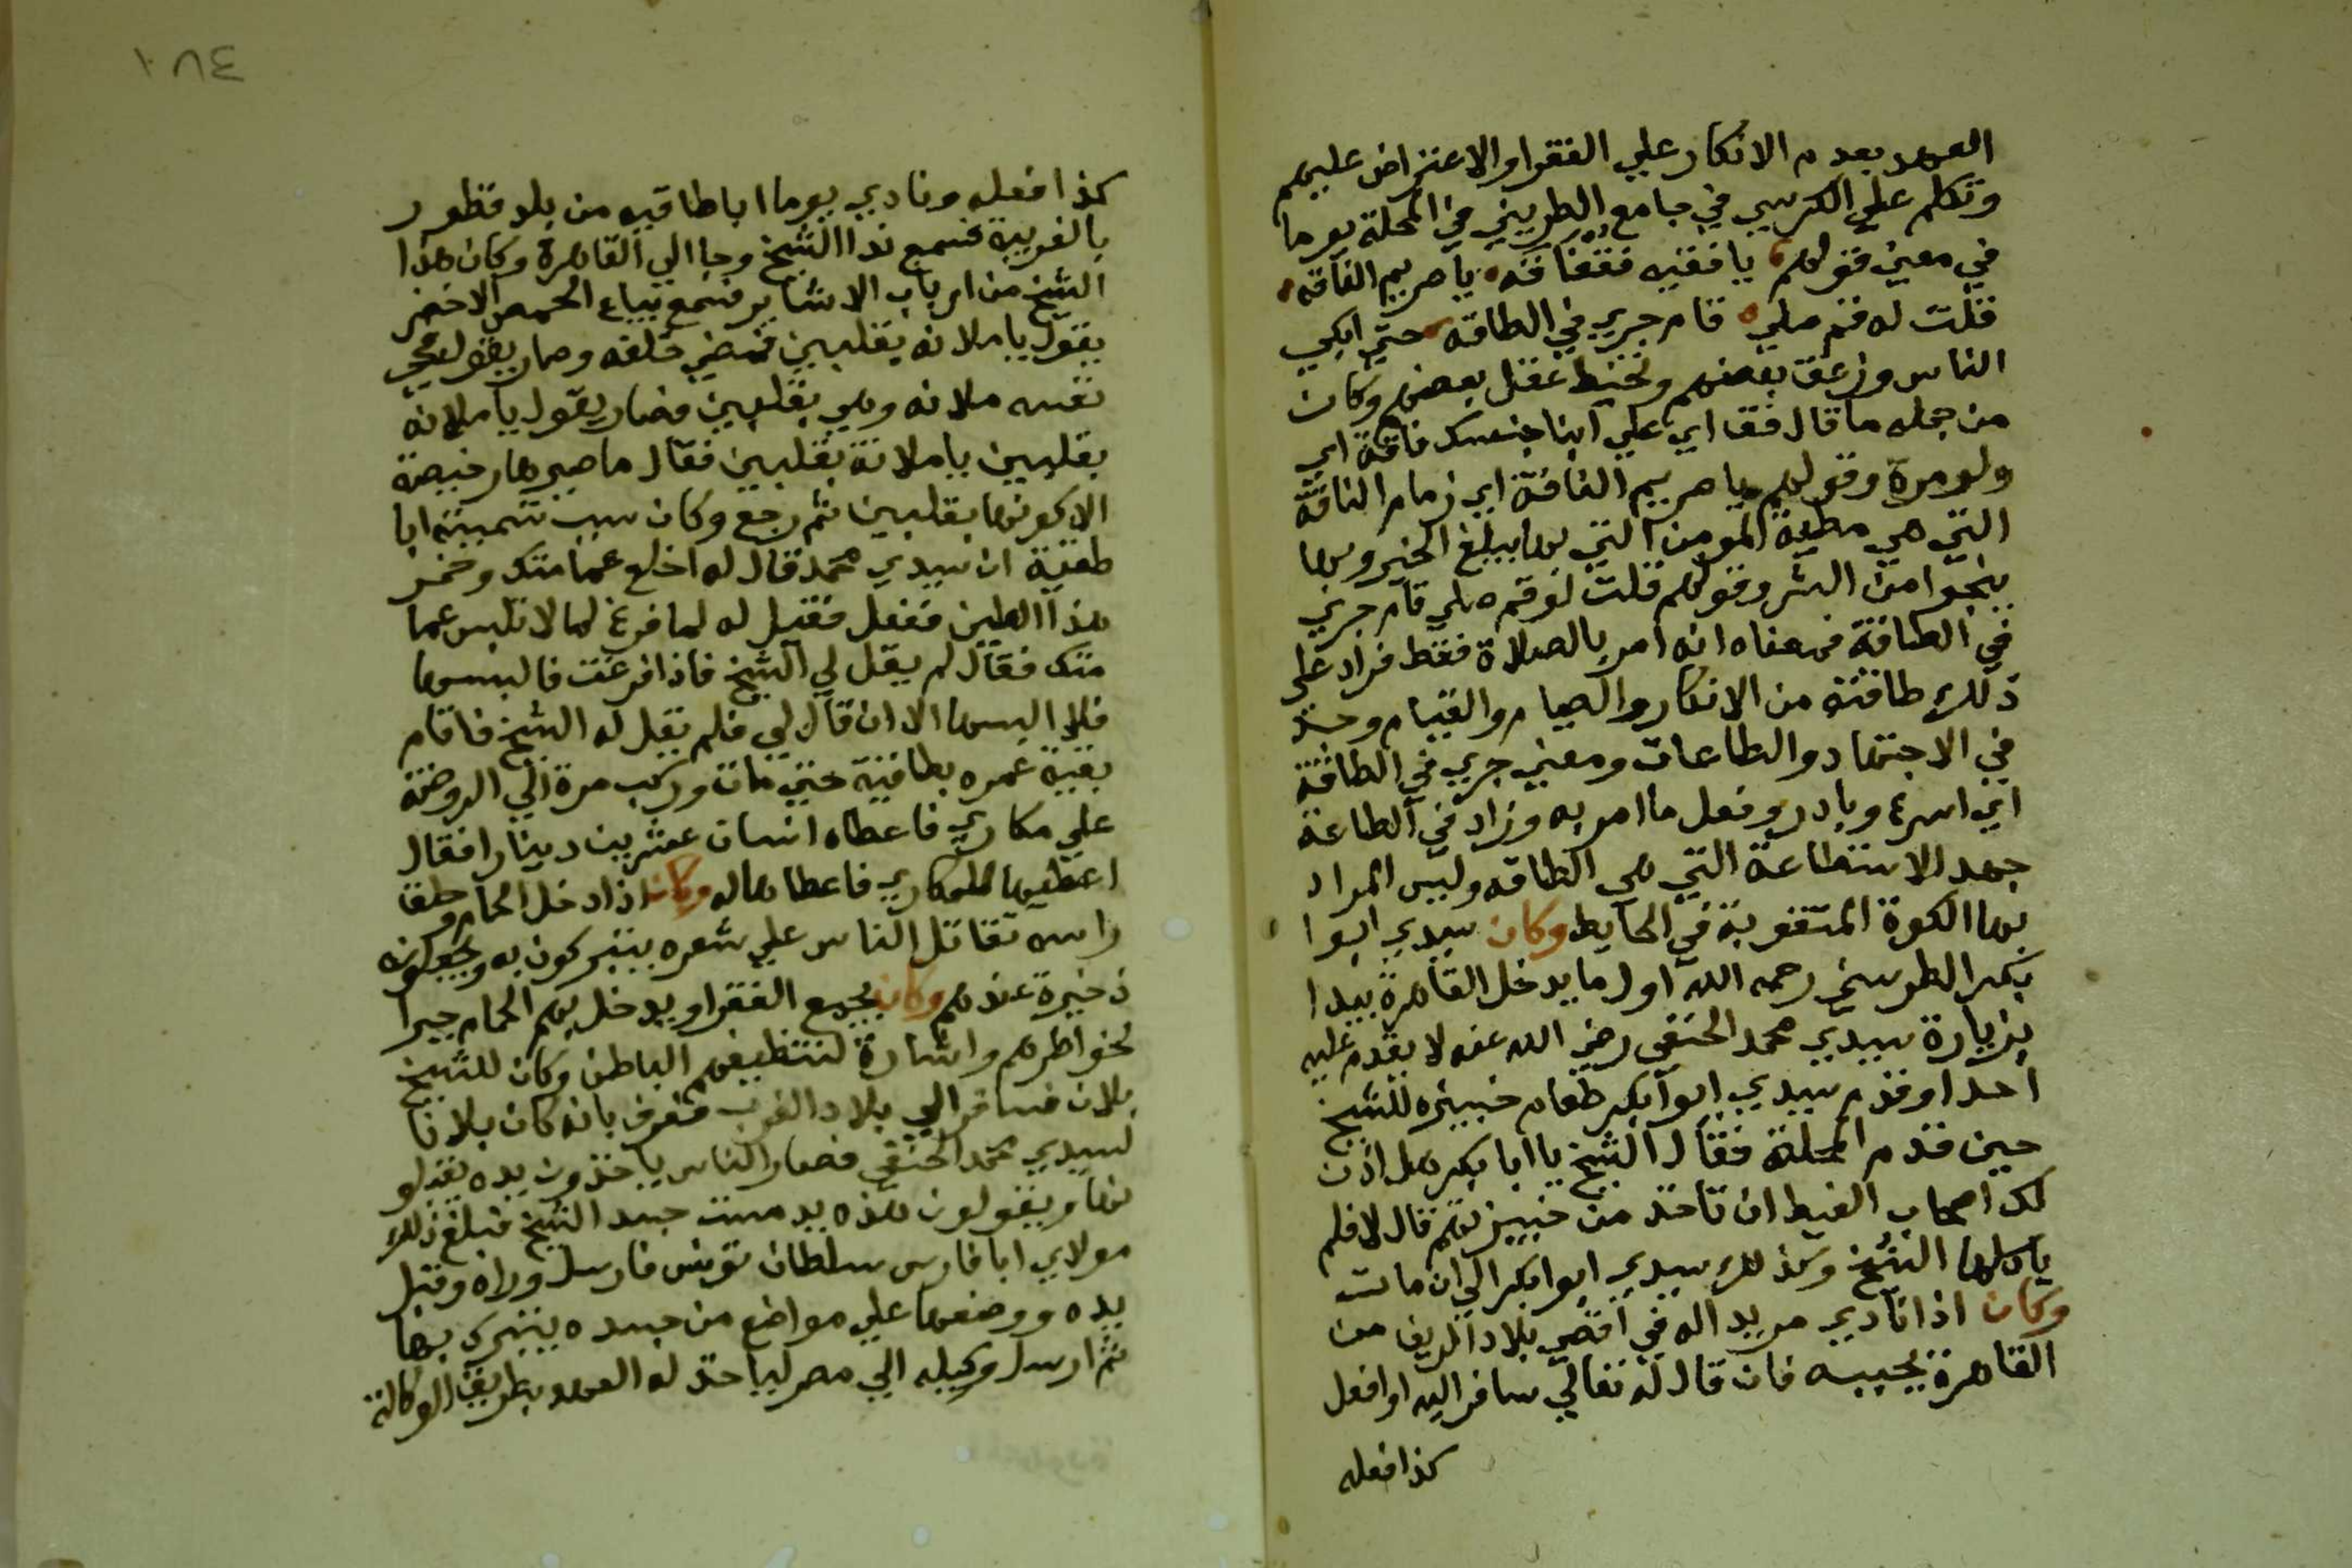 العهد بعدم الانكار علي الفقرا والاعتراض عليهم
وتكلم علي الكرسي في جامع الطريني في المحلة يوما
في معني قولهم يا فقيه فقفاقه يا مريم الفاقه
قلت له قم صلي قام جري في الطاقه حتي ابكي
الناس وزعق بعضهم وتخبط عقل بعضهم وكان
من جمله ما قال فقا اي علي ابنا جنسك فاقة اي
ولو مرة وقولهم يا مريم الفاقة اي زمام الناقة
التي هي مطية المومن التي بها يبلغ الخير وبها
ينجوا من الشر وقولهم قلت لو قم صلي قام جري
في الطاقة فمعناه انه امر بالصلاة فقط فزاد علي
ذلك طاقته من الاذكار والصيام والقيام وجد
في الاجتهاد والطاعات ومعني جري في الطاقة
اي اسرع وبادر وفعل ما امر به وزاد في الطاعة
جهد الاستطاعة التي هي الطاقه وليس المراد
بها الكوة المثقوبة في الحايط وكان سيدي ابوا
بكر الطريني رحمه الله اول ما يدخل القاهرة يبدا
بزيارة سيدي محمد الحنفي رضي الله عنه لا يقدم عليه
احدا وقدم سيدي ابوا بكر طعام خبيزه للشيخ
حين قدم المحلة فقال الشيخ يا ابا بكر هل اذن
لك اصحاب الغيط ان تاخذ من خبيزتهم قال لا فلم
ياكلها الشيخ وكذلك سيدي ابوا بكر الي ان مات
وكان اذا نادي مريدا له في اقصي بلاد الريف من
القاهرة يجيبه فان قال له تعالي سافر اليه او افعل
كذا فعله
١٠٧٤
كذا فعله ونادي يوما ابا طاقيه من بلد قطور
بالغربية فسمع ندا الشيخ وجا الي القاهرة وكان هذا
الشيخ من ارباب الاشاير فسمع بياع الحمص الاخضر
يقول يا ملانه بقلبين فمضي خلفه وصار يقول
نفسه ملانه وهي بقلبين فصار يقول يا ملانه
بقلبين يا ملانة بقلبين فقال ما صيرها رخيصة
الا كونها بقلبين ثم رجع وكان سبب تسميته ابا
طقية ان سيدي محمد قال له اخلع عمامتك وخمر
هذا الطين ففعل فقيل له لما فرغ لما لا تلبس عما
متك فقال لم يقل لي الشيخ فاذا فرغت فالبسها
فلا البسها الا ان قال لي فلم يقل له الشيخ فاقام
بقية عمره بطاقية حتي مات وركب مرة الي الروضة
علي مكاري فاعطاه انسان عشرين دينارا فقال
اعطيها للمكاري فاعطاها له وكان اذا دخل الحمام وحلق
راسه تقاتل الناس علي شعره يتبركون به ويجعلونه
ذخيرة عندهم وكان يجمع الفقرا ويدخل بهم الحمام جبرا
لخواطرهم واشارة لتنظيفهم الباطن وكان للشيخ
بلان فسافر الي بلاد الغرب فعرف بانه كان بلانا
لسيدي محمد الحنفي فصار الناس ياخذون يده يقبلو
نها ويقولون هذه يد مست جسد الشيخ فبلغ ذلك
مولاي ابا فارس سلطان تونس فارسل وراه وقبل
يده ووضعها علي مواضع من جسده يتبرك بها
ثم ارسل وكيله الي مصر لياخذ له العهد بطريق الوكالة